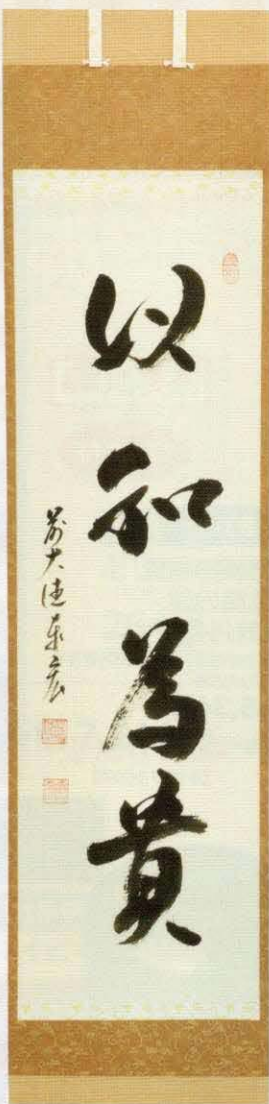 以和為貴
前大徳